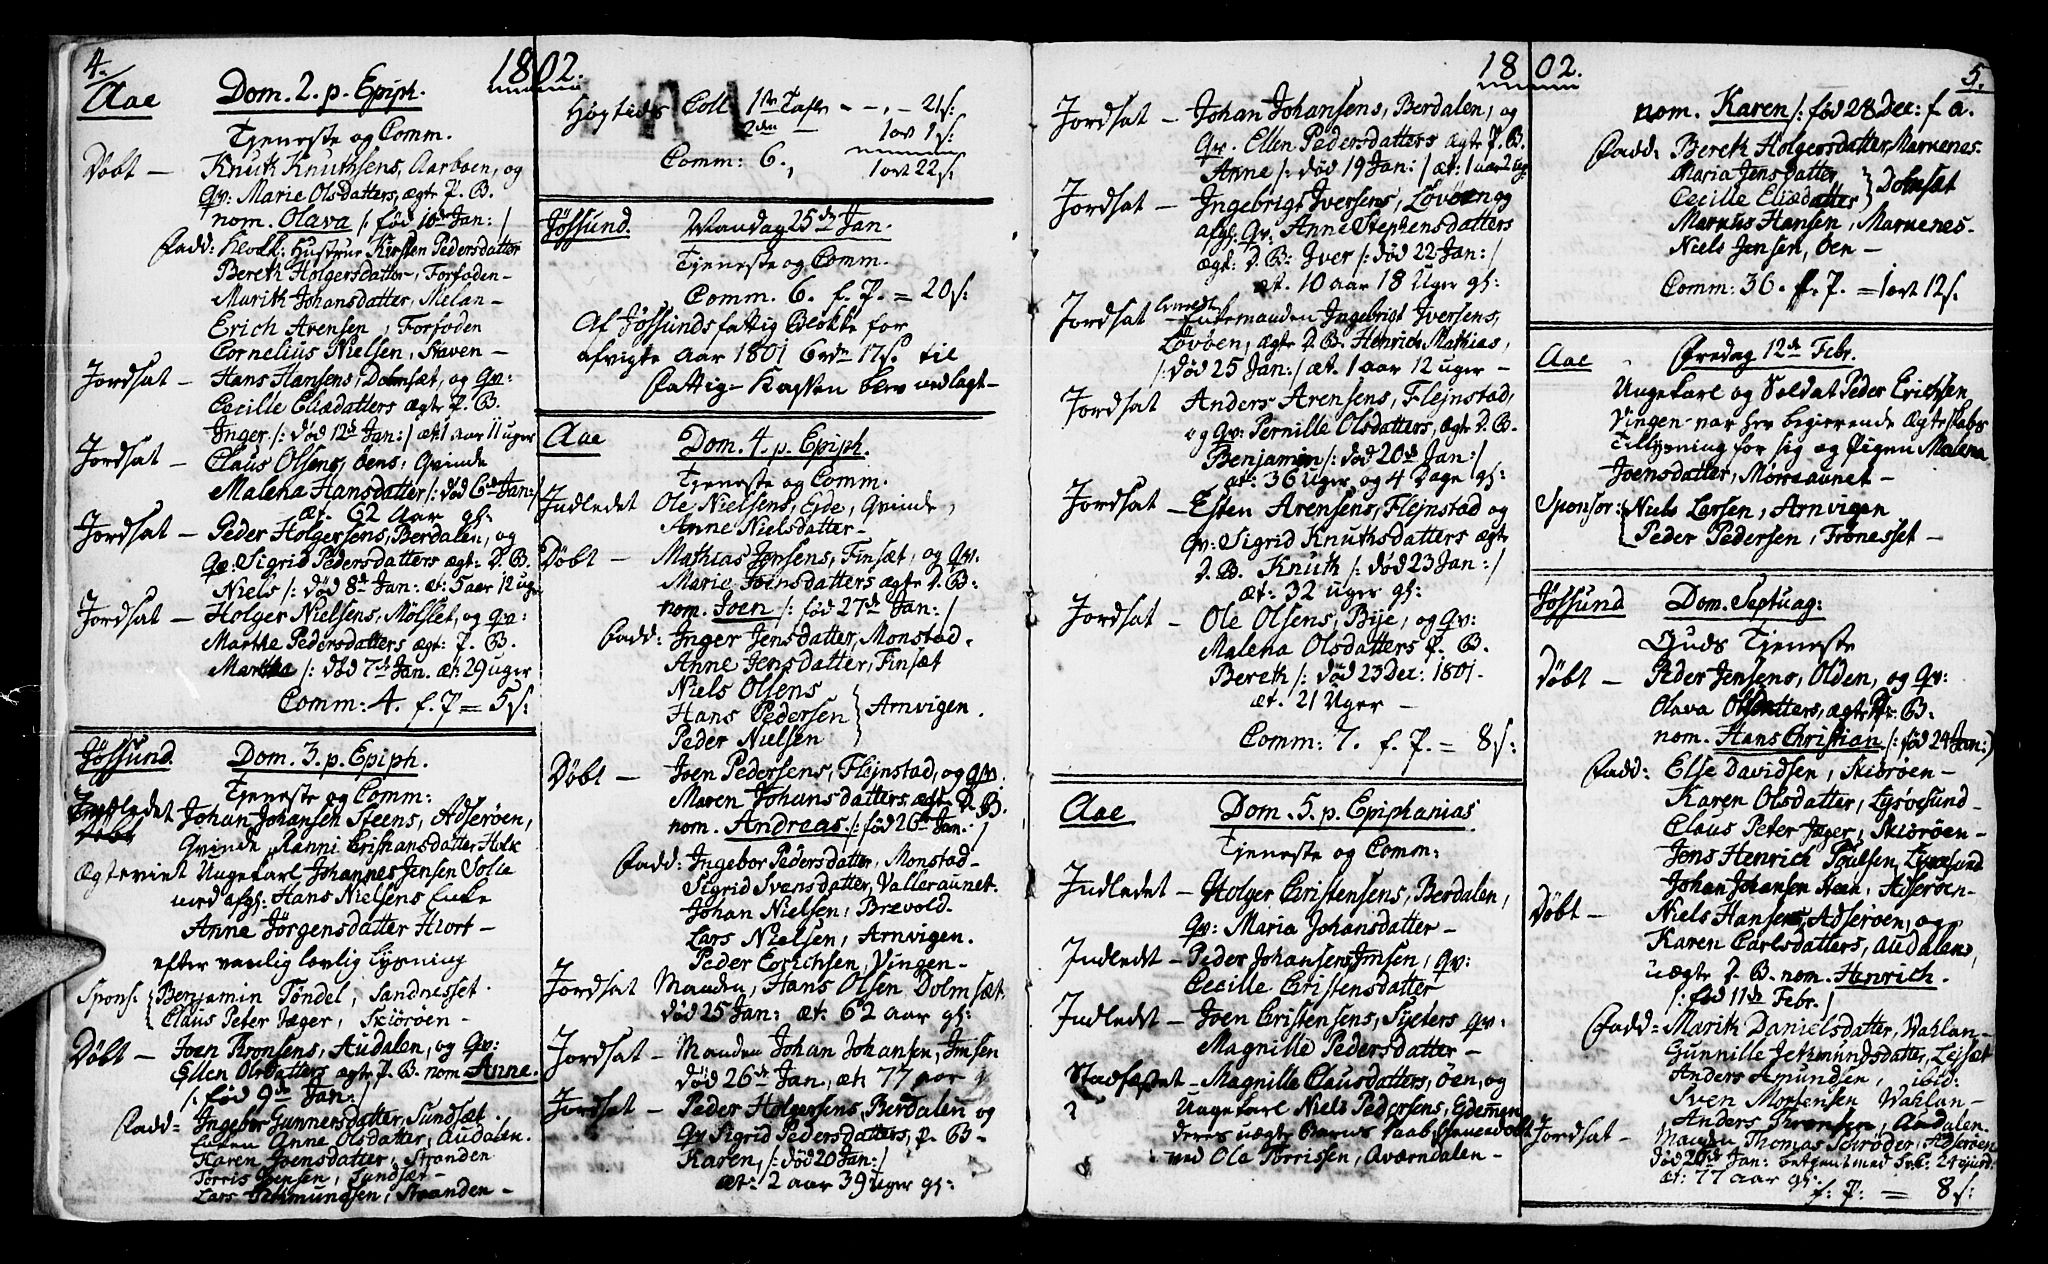 4.
1802.
Aae
Dom. 2. p. Epiph.
Tjeneste og Comm.
Døbt — Knuth Knuthsens, Aarboen, og
Qv: Marie Olsdatters, ægte P. B.
nom. Olava /: fød 10de Jan: /
Fadd: Klokk: Hustrue Kirsten Pedersdatter
Bereth Holgersdatter, Forfoden —
Marith Johansdatter, Melan —
Erich Arensen, Forfoden
Cornelius Nielsen, Staven —
Jordsat — Hans Hansens, Dolmsæt, og Qv:
Cecille Eliædatters ægte P. B.
Inger /: død 12de Jan: / æt 1 aar 11 uger
Jordsat — Claus Olsens, Øens, Qvinde
Malena Hansdatter /: død 6de Jan: /
æt. 62 Aar gl:
Jordsat — Peder Holgersens, Berdalen, og
Qv: Sigrid Pedersdatters ægt: D. B.
Niels /: død 8de Jan: æt: 5 aar 12 uger
Jordsat — Holger Nielsens, Mølslet, og Qv:
Marthe Pedersdatters ægt: P. B.
Martha /: død 7de Jan. æt: 29 uger
Comm: 4. f. P = 5 s:
Jøssund.
Dom. 3. p. Epiph.
Tjeneste og Comm:
Indledet Johan Johansen Steens, Adserøen,
Qvinde, Ranni Cristiansdatter Holk
Ægteviet Ungekarl Johannes Jensen Solie
med afgl: Hans Nielsens Enke
Anne Jørgensdatter Hiort —
efter vanlig lovlig Lysning
Spons: Benjamin Tøndel, Sandnesset.
Claus Peter Jæger, Skiørøen —
Døbt — Joen Thronsens, Audalen, og Qv:
Ellen Olsdatters ægte P. B. nom Anne.
/: fød 9de Jan: /
Fadd: Ingebor Gunnersdatter, Sundsæt.
Anne Olsdatter, Audalen.
Karen Joensdatter, Stranden
Torris Joensen, Sundsæt —
Lars Jetmundsen, Stranden —
Høytids Coll 1ste Tavle — — 21 s:
2den — 1 ort 1 s:
Comm: 6. 1 ort 22 s:
Jøssund.
Mandag 25de Jan.
Tjeneste og Comm.
Comm. 6. f. P. = 20 s:
Af Jøssunds fattig Blokke for
afvigte Aar 1801 6 rdr 17 s. til
Fattig-Kassen blev nedlagt —
Aae
Dom. 4. p. Epiph.
Tjeneste og Comm.
Indledet Ole Nielsens, Ede, Qvinde,
Anne Nielsdatter —
Døbt — Mathias Jensens, Finsæt, og Qv:
Marie Joensdatters ægte D. B:
nom. Joen /: fød 27de Jan: /
Fadd: Inger Jensdatter, Monstad.
Anne Jensdatter, Finsæt
Niels Olsens
Hans Pedersen } Arnvigen.
Peder Nielsen
Døbt — Joen Pedersens, Flejnstad, og Qv.
Maren Johansdatters ægt D. B.
nom. Andreas /: fød 26de Jan: /
Fadd: Ingebor Pedersdatter, Monstad —
Sigrid Svensdatter, Valleraunet.
Johan Nielsen, Brevold.
Lars Nielsen, Arnvigen.
Peder Erichsen, Vingen —
Jordsat Manden, Hans Olsen Dolmsæt.
død 25 Jan: æt: 62 aar gl:
Jordsat — Manden Johan Johansen, Imsen
død 26de Jan., æt: 77 aar
Jordsat — Peder Holgersens, Berdalen og
Qv Sigrid Pedersdatters, P. B —
Karen, /: død 20 Jan: /
æt: 2 aar 39 uger gl:
1802.
5.
Jordsat — Johan Johansens, Berdalen, og
Qv. Ellen Pedersdatters ægte P. B.
Anne /: død 19 Jan: / æt: 1 aar 2 ug
Jordsat — Ingebrigt Iversens, Løvøen og
afgl: Qv: Anne Stephensdatters
ægt: D. B: Iver /: død 22 Jan: /
æt. 10 aar 18 Uger gl:
Jordsat Enkemanden Ingebrigt Iversens,
Løvøen, ægte D. B. Henrich Mathias,
/: død 25 Jan: / æt. 1 aar 12 uger —
Jordsat Anders Arensens, Flejnstad,
og Qv: Pernille Olsdatters, ægte D. B.
Benjamin /: død 20de Jan: /
æt: 36 uger og 4 Dage gl:
Jordsat — Esten Arensens, Flejnstad og
Qv: Sigrid Knuthsdatters ægte
D. B. Knuth /: død 23 Jan: /
æt: 32 uger gl:
Jordsat — Ole Olsens, Bije, og Qv:
Malena Olsdatters P. B.
Bereth /: død 23 Dec: 1801.
æt. 21 Uger —
Comm: 7. f. P. = 8 s:
Aae
Dom. 5. p. Epiphanias
Tjeneste og Comm:
Indledet — Holger Cristensens, Berdalen,
Qv: Maria Johansdatter —
Indledet — Peder Johansens, Imsen, Qv:
Cecille Cristensdatter
Indledet — Joen Cristensens, Sæters Qv:
Magnille Pedersdatter —
Stadfæstet — Magnille Clausdatters, Øen, og
Ungekarl Niels Pedersens, Edemen
deres uægte Barns Daab,
ved Ola Torrissen, Aværndalen —
nom. Karen /: fød 28 Dec: f. a.
Fadd: Bereth Holgersdatter, Marnenes.
Maria Jensdatter
Cecille Eliædatter } Dolmsæt
Markus Hansen, Marnenes —
Niels Jensen, Øen —
Comm: 36. f. P. = 1 ort 12 s.
Aae
Fredag 12de Febr.
Ungekarl og Soldat Peder Erichsen
Vingen var her begierende Ægteskabs
Tillysning for sig og Pigen Malena
Joensdatter, Mørreaunet —
Sponsor: Niels Larsen, Arnvigen
Peder Pedersen, Frønesset —
Jøssund
Dom. Septuag:
Guds Tjeneste
Døbt — Peder Jensens, Olden, og Qv:
Olava Olsdatters, ægte P. B:
nom. Hans Christian /: fød 24 Jan: /
Fadd: Else Davidsen, Skiørøen —
Karen Olsdatter, Lysøesund —
Claus Peter Jæger, Skiørøen —
Jens Henrich Poulsen, Lysøesund
Johan Johansen Steen, Adserøen —
Døbt — Niels Hansens, Adserøen, og
Karen Carlsdatters, Audalen,
uægte D. B. nom. Henrich.
/: fød 11de Febr. /
Fadd = Marith Danielsdatter, Vahlan —
Gunnille Jetmundsdatter, Lejsæt
Anders Amundsen, ibid:
Sven Mortensen Vahlan —
Anders Thronsen, Audalen.
Jordsat — Manden Thomas Schrøder, Adserøen
død 26de Jan:
æt: 77 aar gl:
f. P. = 8 s: